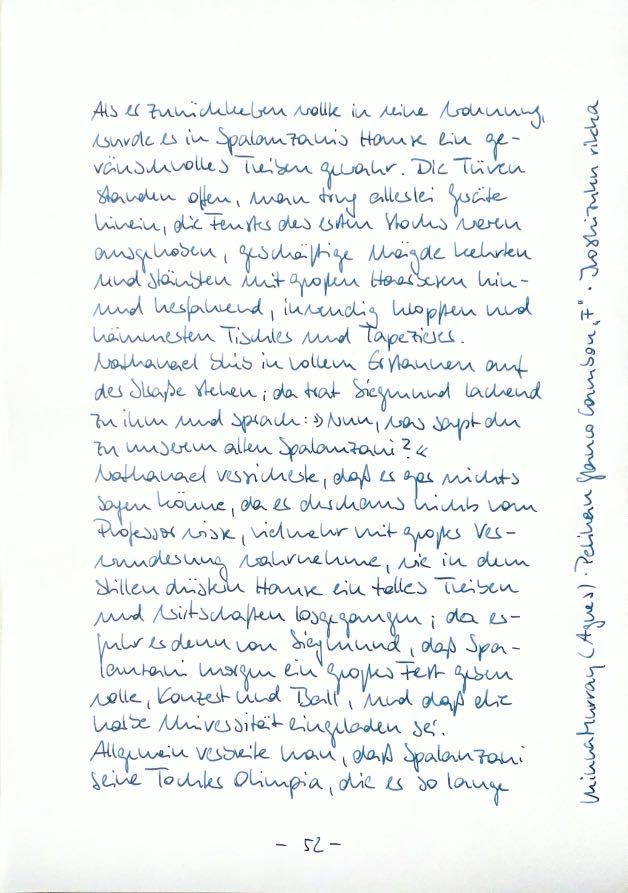 Als er zurückkehren wollte in seine Wohnung,
wurde er in Spalanzanis Hause ein ge-
räuschvolles Treiben gewahr. Die Türen
standen offen, man trug allerlei Geräte
hinein, die Fenster des ersten Stocks waren
ausgehoben, geschäftige Mägde kehrten
und stäubten mit großen Haarbesen hin-
und herfahrend, inwendig klopften und
hämmerten Tischler und Tapezierer.
Nathanael blieb in vollem Erstaunen auf
der Straße stehen; da trat Siegmund lachend
zu ihm und sprach: »Nun, was sagst du
zu unserem alten Spalanzani?«
Nathanael versicherte, daß er gar nichts
sagen könne, da er durchaus nichts vom
Professor wisse, vielmehr mit großer Ver-
wunderung wahrnehme, wie in dem
stillen düstern Hause ein tolles Treiben
und Wirtschaften losgegangen; da er-
fuhr er denn von Siegmund, daß Spa-
lanzani morgen ein großes Fest geben
wolle, Konzert und Ball, und daß die
halbe Universität eingeladen sei.
Allgemein verbreite man, daß Spalanzani
seine Tochter Olimpia, die er so lange
- 52 -
Minna Murray (Agnes) · Pelikan Graphos „F" · Iroshizuku rikka